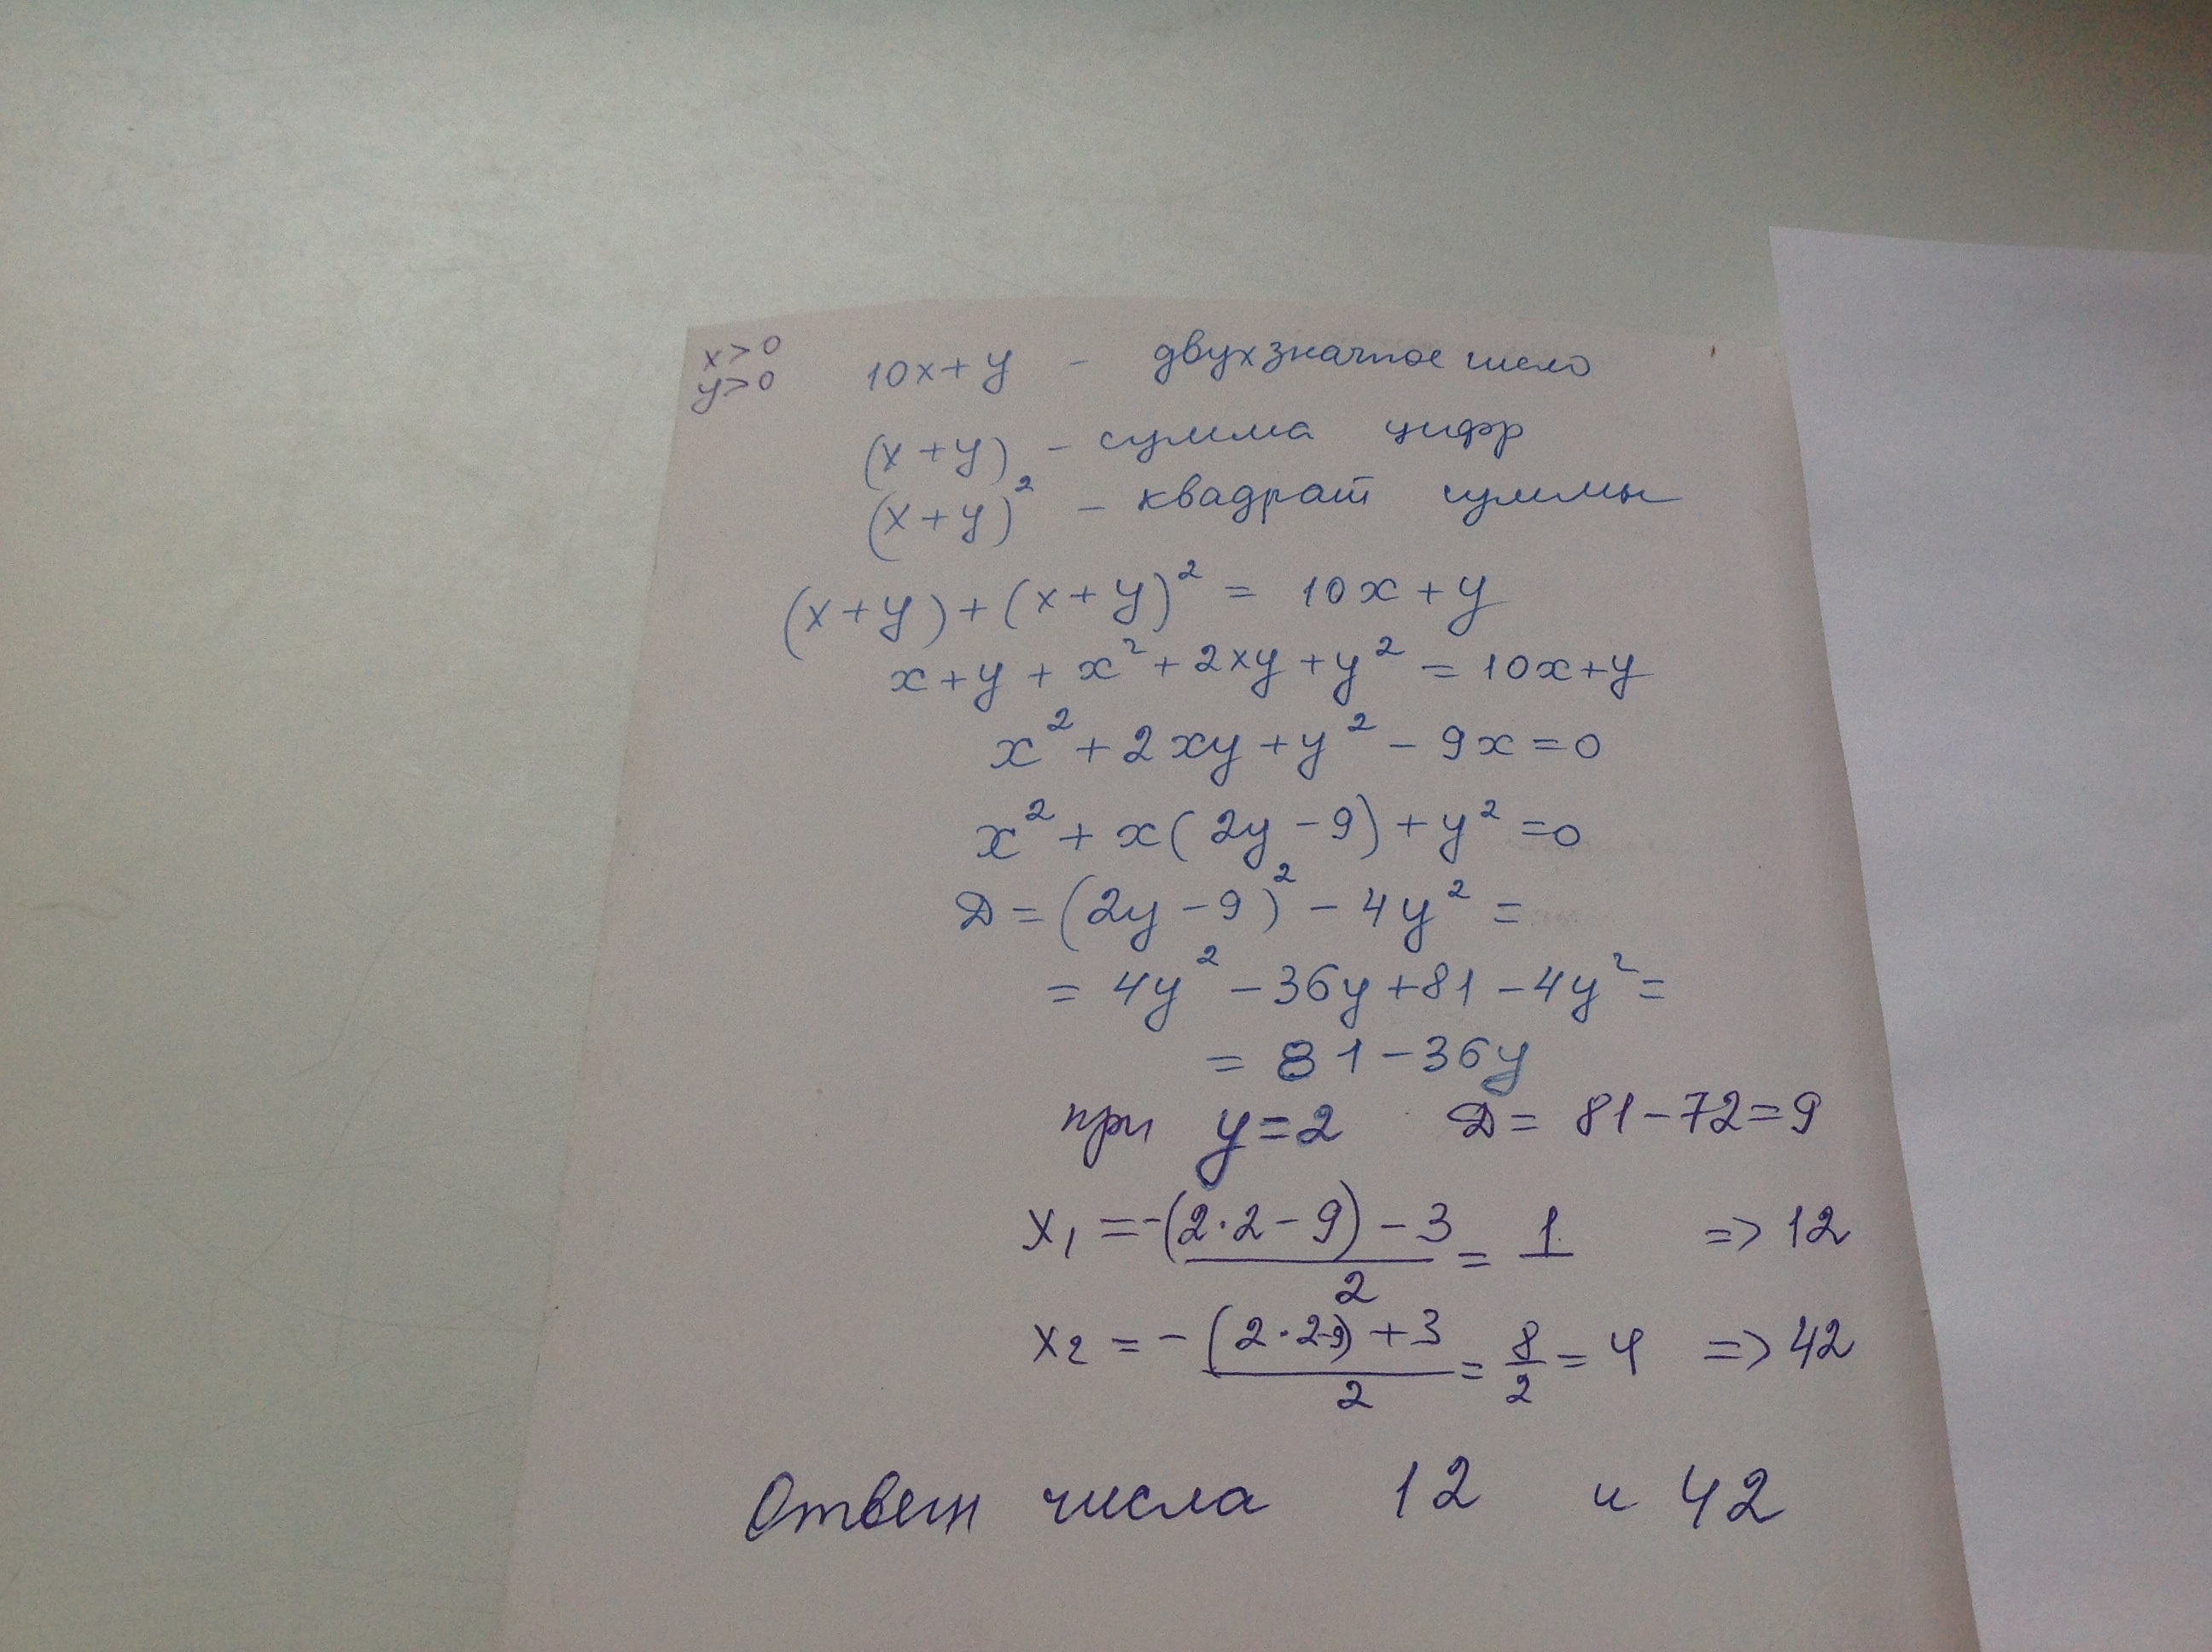 x>0
y>0
10x+y - двухзначное число
(x+y) - сумма цифр
(x+y)² - квадрат суммы
(x+y)+(x+y)² = 10x+y
x+y+x²+2xy+y² = 10x+y
x²+2xy+y²-9x=0
x²+x(2y-9)+y²=0
D=(2y-9)²-4y²=
=4y²-36y+81-4y²=
=81-36y
при y=2 D=81-72=9
x₁=-(2·2-9)-3/2=1 => 12
x₂=-(2·2-9)+3/2=8/2=4 => 42
Ответ числа 12 и 42